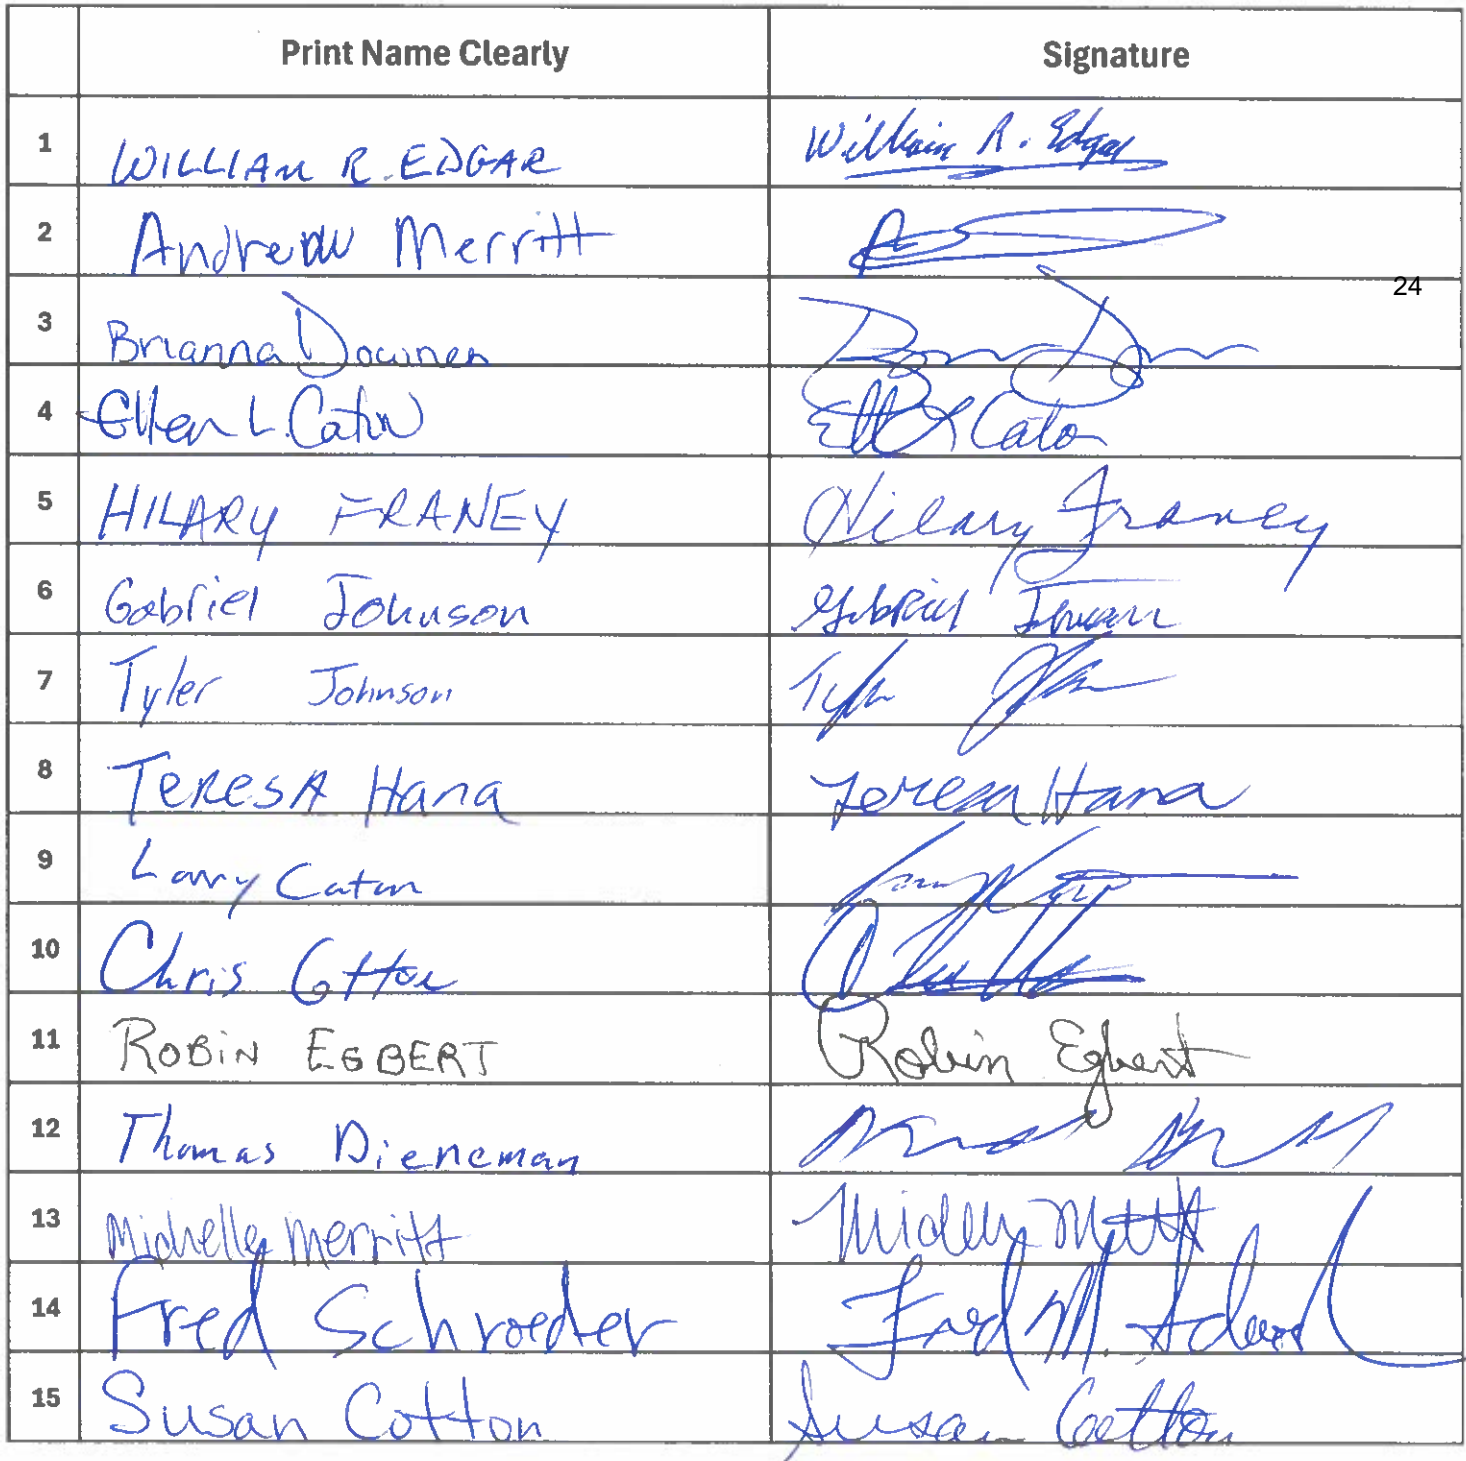 Print Name Clearly Signature
1 WILLIAM R. EDGAR William R. Edgar
2 Andrew Merritt
24
3 Brianna Downen
4 Ellen L. Caton Ell L Caton
5 HILARY FRANEY Hilary Franey
6 Gabriel Johnson Gabriel Johnson
7 Tyler Johnson Tyler
8 TERESA Hana Teresa Hana
9 Larry Caton
10 Chris Cotton
11 ROBIN EGBERT Robin Egbert
12 Thomas Dieneman
13 Michelle Merritt
14 Fred Schroeder Fred M.
15 Susan Cotton Susan Cotton